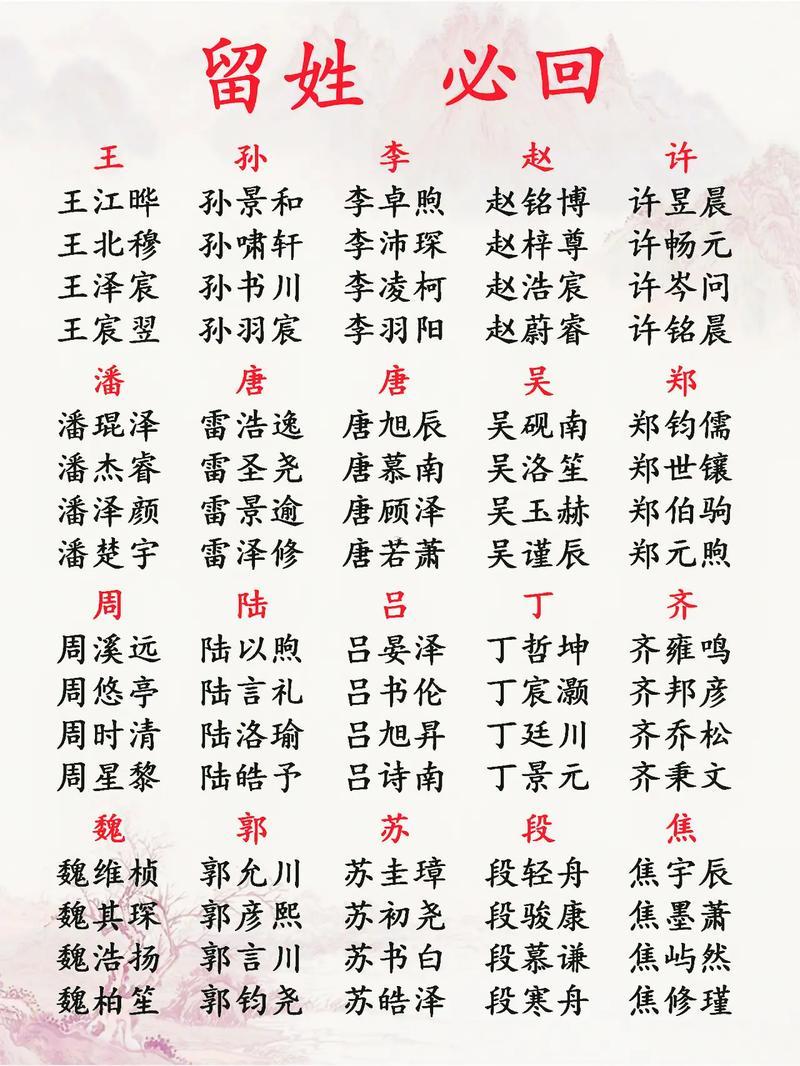 留姓 必回
王 孙 李 赵 许
王江晔 孙景和 李卓煦 赵铭博 许昱晨
王北穆 孙啸轩 李沛琛 赵梓尊 许畅元
王泽宸 孙书川 李凌柯 赵浩宸 许岑问
王宸翌 孙羽宸 李羽阳 赵蔚睿 许铭晨
潘 唐 唐 吴 郑
潘琨泽 雷浩逸 唐旭辰 吴砚南 郑钧儒
潘杰睿 雷圣尧 唐慕南 吴洛笙 郑世镶
潘泽颜 雷景逾 唐顾泽 吴玉赫 郑伯驹
潘楚宇 雷泽修 唐若萧 吴谨辰 郑元煦
周 陆 吕 丁 齐
周溪远 陆以煦 吕晏泽 丁哲坤 齐雍鸣
周悠亭 陆言礼 吕书伦 丁宸灏 齐邦彦
周时清 陆洛瑜 吕旭昇 丁廷川 齐乔松
周星黎 陆皓予 吕诗南 丁景元 齐秉文
魏 郭 苏 段 焦
魏维桢 郭允川 苏圭璋 段轻舟 焦宇辰
魏其琛 郭彦熙 苏初尧 段骏康 焦墨萧
魏浩扬 郭言川 苏书白 段慕谦 焦屿然
魏柏笙 郭钧尧 苏皓泽 段寒舟 焦修瑾